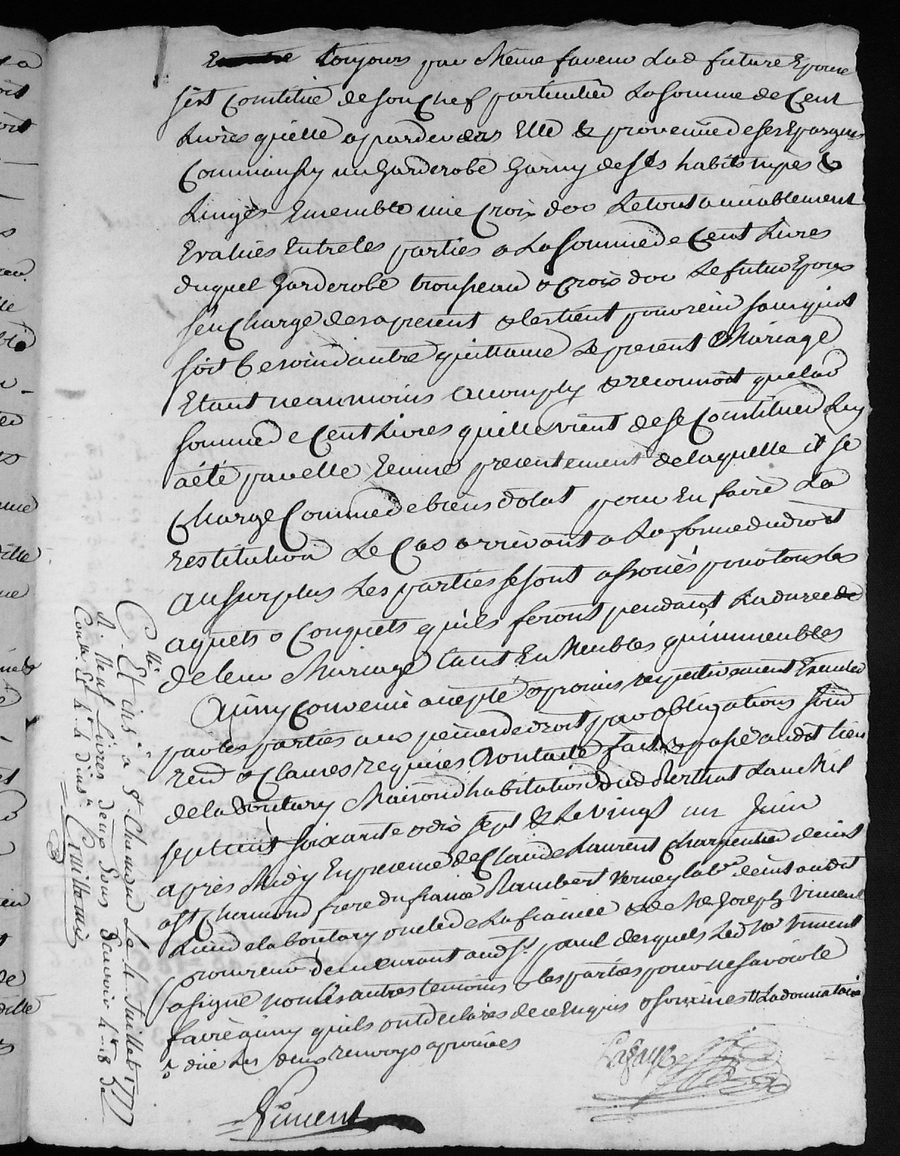 toujours par Meme faveur Lad future Epouse
sest Constitué de son Chef particulier La somme de Cent
Livres quelle a pardevers Elle & provenüe de ses Epargnes
Comm'aussy un Garderobe Garny de ses habits nipes &
Linges Ensemble une Croix dor Le tout amiablement
Evalués Entre les parties a La somme de Cent Livres
duquel Garderobe trousseau & Croix dor Le futur Epoux
s'en Charge des apresent & les tient pour sans quil
soit besoin dautre quittance Le present Mariage
Etant neanmoins accomply & reconnoit que lad
somme de Cent Livres quelle vient de se Constituer Luy
a eté par elle remise presentement de laquelle il se
Charge Comme de biens dolat pour En faire La
restitution Le Cas arrivant a La forme du droit
au surplus Les parties se sont associés pour tous les
aquets & Conquets quils feront pendant La durée de
de leur Mariage tant En Meubles qu'immeubles
Ainsy Convenu accepté & promis respectivement Executer
par les parties aux peines de droit par obligations soumis
rend & Clauses requises fait & passé audit Lieu
de la boutary Maison d'habitation dud Berthat Lan Mil
sept Cent soixante & dix sept & Le vingt un Juin
apres Midy En presence de Claude Laurent Charpentier de
a St Chamond frere du fiancé Rambert Verney Labr demt audit
Lieu de la boutary oncle de La fiancée & de Me Joseph Vincent
procureur demeurant aud St paul desquels Led Me Vincent
a signé non les autres temoins & les parties pour ne savoir le
faire ainsy quils ont declarés de ce Enquis & sommés La donnataire
& dite Les deux renvoys aprouvés
Vincent
Lafay
Cllé Et ins à St Chamond Le 4 Juillet 1777
R. neuf Livres deux sous savoir 4# 18 de
Con. Et 4# 4 d'ins